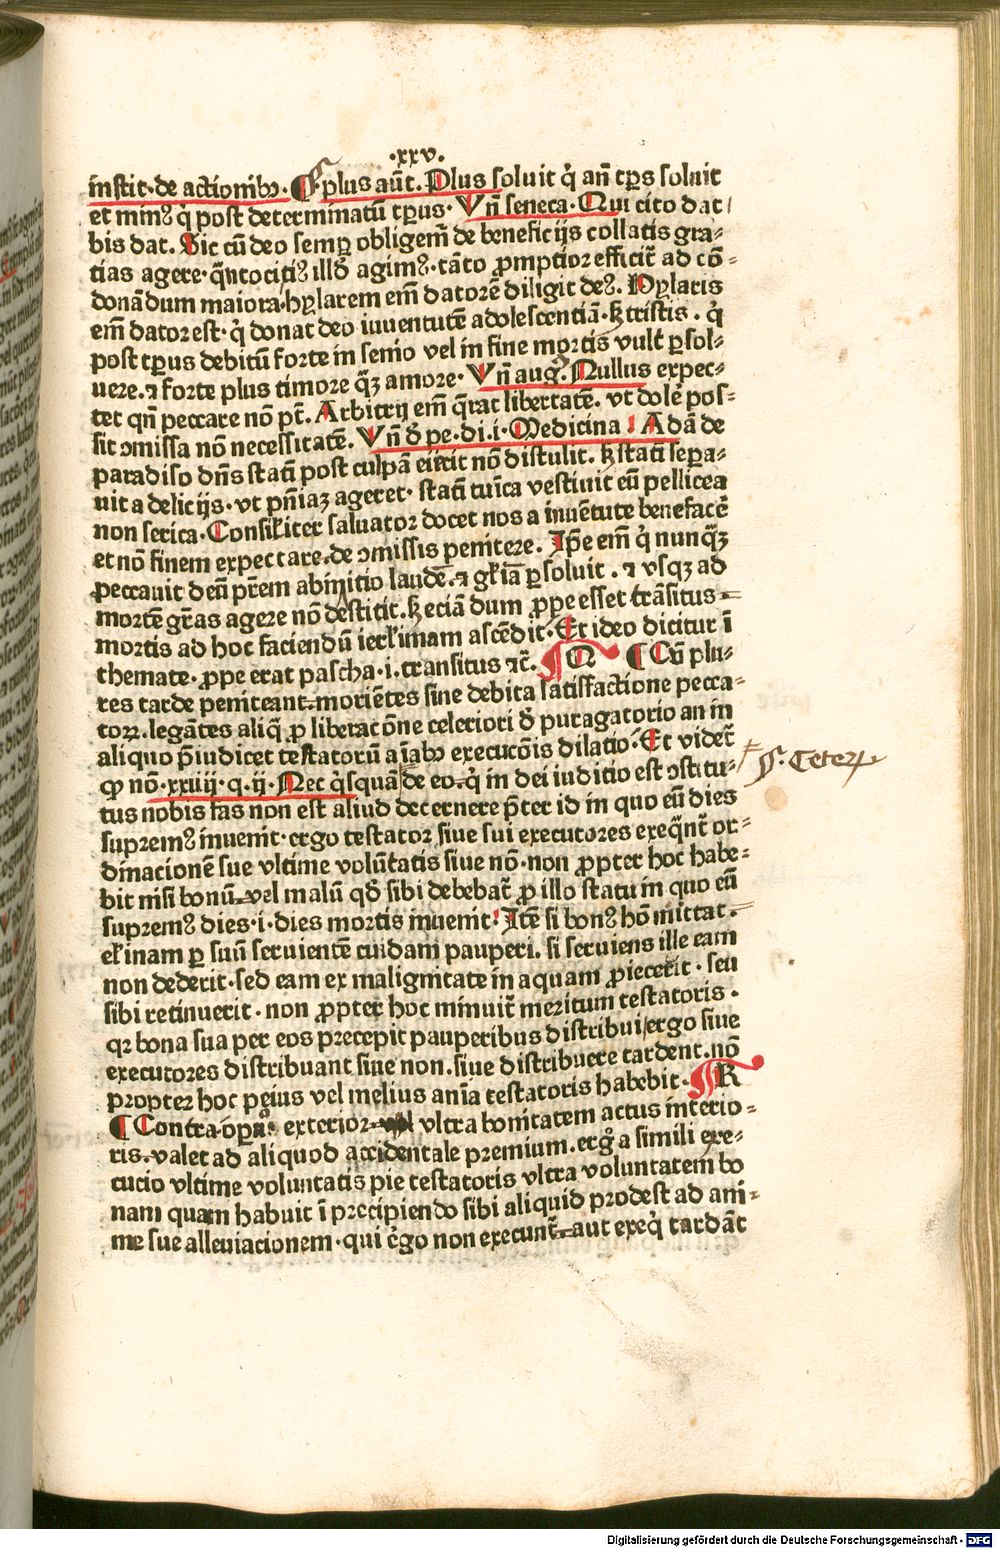 .xxv.
instit. de actionibꝰ. ¶ ꝑ. plus aūt. Plus soluit q̇ an̄ tꝑs soluit
et minꝰ q̇ post determinatū tꝑus. Vn̄ seneca. Qui cito dat
bis dat. Sic cū deo semꝑ obligem̄ de beneficijs collatis gra-
tias agere. q̄ntocitiꝰ illđ agimꝰ. tāto ꝓmptior efficit̄ ad cō-
donādum maiora. hylarem em̄ datorē diligit deꝰ. Hylaris
em̄ dator est. q̇ donat deo iuuentutē adolescentiā. ꝫ tristis. q̇
post tꝑus debitū forte in senio vel in fine mortis vult ꝑsol-
uere. ⁊ forte plus timore q̄ꝫ amore. Vn̄ augꝰ. Nullus expec-
tet qn̄ peccare nō pt̄. Arbitrij em̄ q̄rat libertatē. vt dolē pos-
sit ꝯmissa nō necessitatē. Vn̄ đ pe. di. i. Medicina. Adā de
paradiso dn̄s stati post culpā eiicit nō distulit. ꝫ stati sepa-
uit a delicijs. vt pn̄iaꝫ ageret. stati tuīca vestiuit eū pellicea
non serica. Consiłiter saluator docet nos a inuētute benefacē
et nō finem expectare. de ꝯmissis penitere. Ipē em̄ q̇ nunq̄ꝫ
peccauit deū pr̄em ab initio laudē. ⁊ głiā ꝑsoluit. ⁊ vsqꝫ ad
mortē gr̄as agere nō destitit. ꝫ eciā dum ꝓpe esset trāsitus
mortis ad hoc faciendū ierłimam ascēdit. Et ideo dicitur ī
themate. ꝓpe erat pascha. i. transitus ⁊c̄. ¶ Q ¶ Cū plu-
res tarde peniteant. moriētes sine debita satisfactione pecca-
toꝝ. legātes aliq̄ ꝓ liberacōne celeriori đ puragatorio an in
aliquo p̄iudicet testatorū aīabꝰ execucōis dilatio. Et videt̄
ꝙ nō. xxiiij. q. ij. Nec q̇squā de eo. q̇ in dei iuditio est ꝯstitu-
ſſ. ceterꝝ
tus nobis fas non est aliud decernere p̄ter id in quo eū dies
supremꝰ inuenit. ergo testator siue sui executores exeq̄nt̄ or-
dinacionē sue vltime volūtatis siue nō. non ꝓpter hoc habe-
bit nisi bonū. vel malū qđ sibi debebat̄ ꝓ illo statu in quo eū
supremꝰ dies. i. dies mortis inuenit. Itē si bonꝰ hō mittat.
ełinam ꝑ suū seruientē cuidam pauperi. si seruiens ille eam
non dederit. sed eam ex malignitate in aquam ꝓiecerit. seu
sibi retinuerit. non ꝓpter hoc minuit̄ meritum testatoris.
qꝛ bona sua per eos precepit pauperibus distribui, ergo siue
executores distribuant siue non. siue distribuere tardent. nō
propter hoc peius vel melius anīa testatoris habebit. ¶ R
¶ Contra. oꝑatꝰ exterior vltra bonitatem actus interio-
ris. valet ad aliquod accidentale premium. erg̊ a simili exe-
cucio vltime voluntatis pie testatoris vltra voluntatem bo
nam quam habuit ī precipiendo sibi aliquid prodest ad ani-
me sue alleuiacionem. qui ērgo non execunt̄. aut exeq̇ tardāt
Digitalisierung gefördert durch die Deutsche Forschungsgemeinschaft - DFG